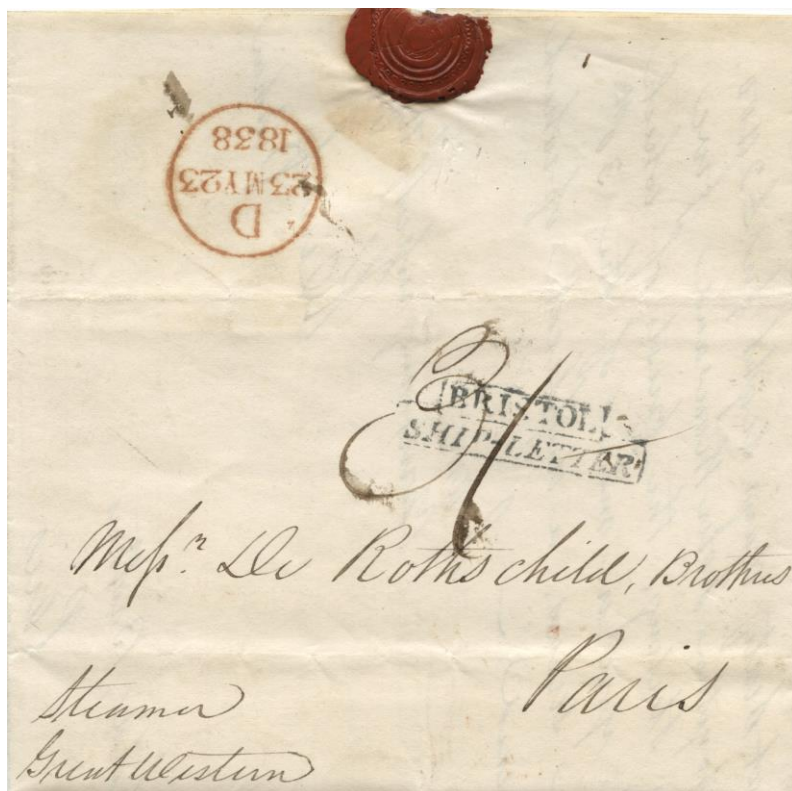 D
23MY23
1838
3/
BRISTOL
SHIP-LETTER
Messrs. De Rothschild, Brothers
Paris
Steamer
Great Western